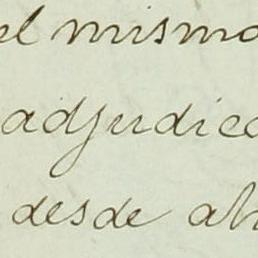 el mismo
adjudica
desde ah